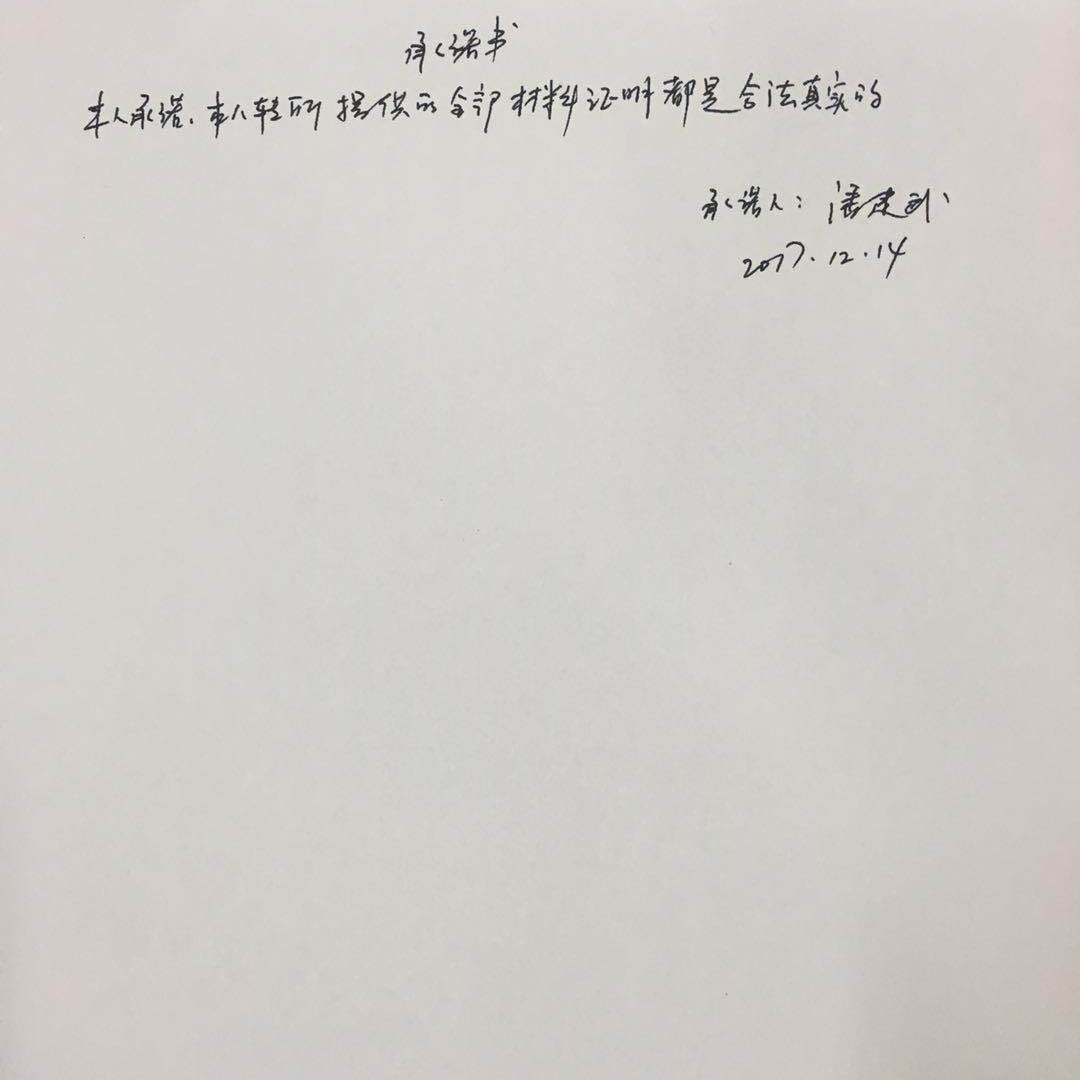 承诺书
本人承诺、本人转所提供的全部材料证明都是合法真实的
承诺人：潘建武
2017.12.14